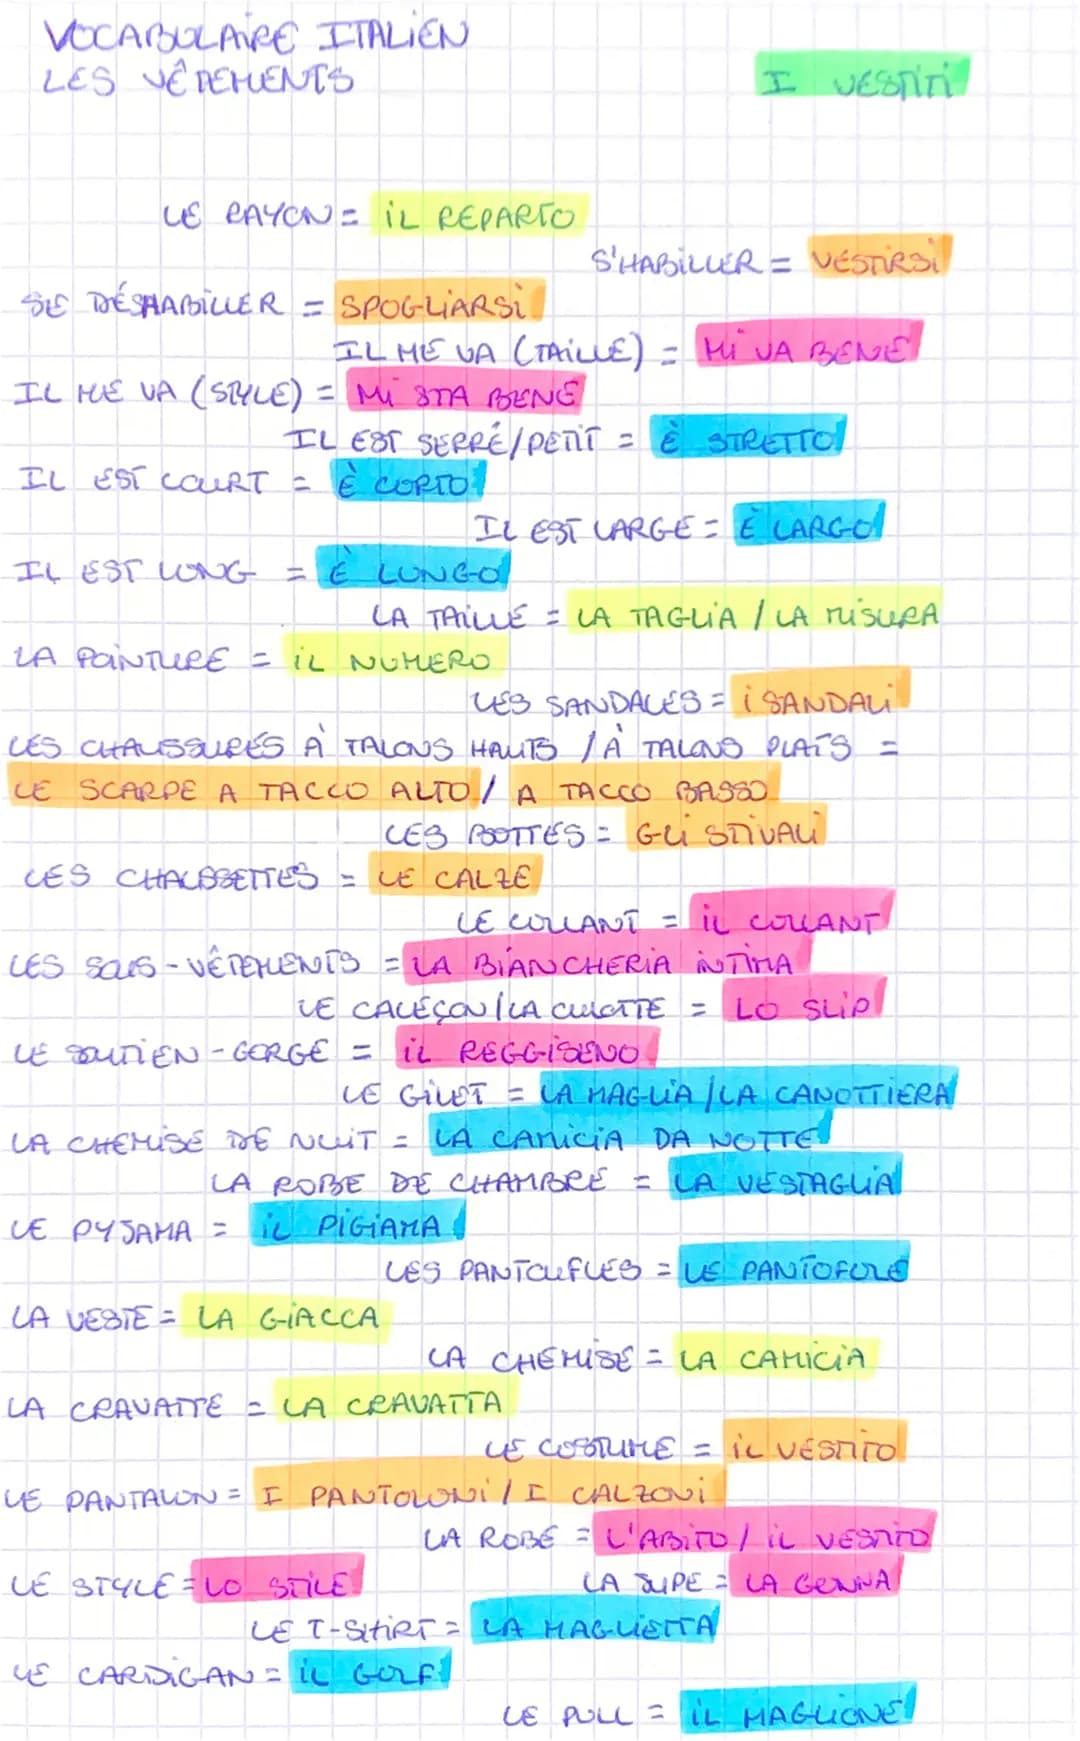 VOCABULAIRE ITALIEN
LES VÊTEMENTS
I VESTITI
LE RAYON = IL REPARTO
S'HABILLER = VESTIRSI
SE DÉSHABILLER = SPOGLIARSI
IL ME VA (TAILLE) = MI VA BENE
IL ME VA (STYLE) = MI STA BENE
IL EST SERRÉ/PETIT = È STRETTO
IL EST COURT = È CORTO
IL EST LARGE = È LARGO
IL EST LONG = È LUNGO
LA TAILLE = LA TAGLIA / LA MISURA
LA POINTURE = IL NUMERO
LES SANDALES = I SANDALI
LES CHAUSSURES À TALONS HAUTS / À TALONS PLATS =
LE SCARPE A TACCO ALTO / A TACCO BASSO
LES BOTTES = GLI STIVALI
LES CHAUSSETTES = LE CALZE
LE COLLANT = IL COLLANT
LES SOUS-VÊTEMENTS = LA BIANCHERIA INTIMA
LE CALEÇON / LA CULOTTE = LO SLIP
LE SOUTIEN-GORGE = IL REGGISENO
LE GILET = LA MAGLIA / LA CANOTTIERA
LA CHEMISE DE NUIT = LA CAMICIA DA NOTTE
LA ROBE DE CHAMBRE = LA VESTAGLIA
LE PYJAMA = IL PIGIAMA
LES PANTOUFLES = LE PANTOFOLE
LA VESTE = LA GIACCA
LA CHEMISE = LA CAMICIA
LA CRAVATTE = LA CRAVATTA
LE COSTUME = IL VESTITO
LE PANTALON = I PANTOLONI / I CALZONI
LA ROBE = L'ABITO / IL VESTITO
LE STYLE = LO STILE
LA JUPE = LA GONNA
LE T-SHIRT = LA MAGLIETTA
LE CARDIGAN = IL GOLF
LE PULL = IL MAGLIONE